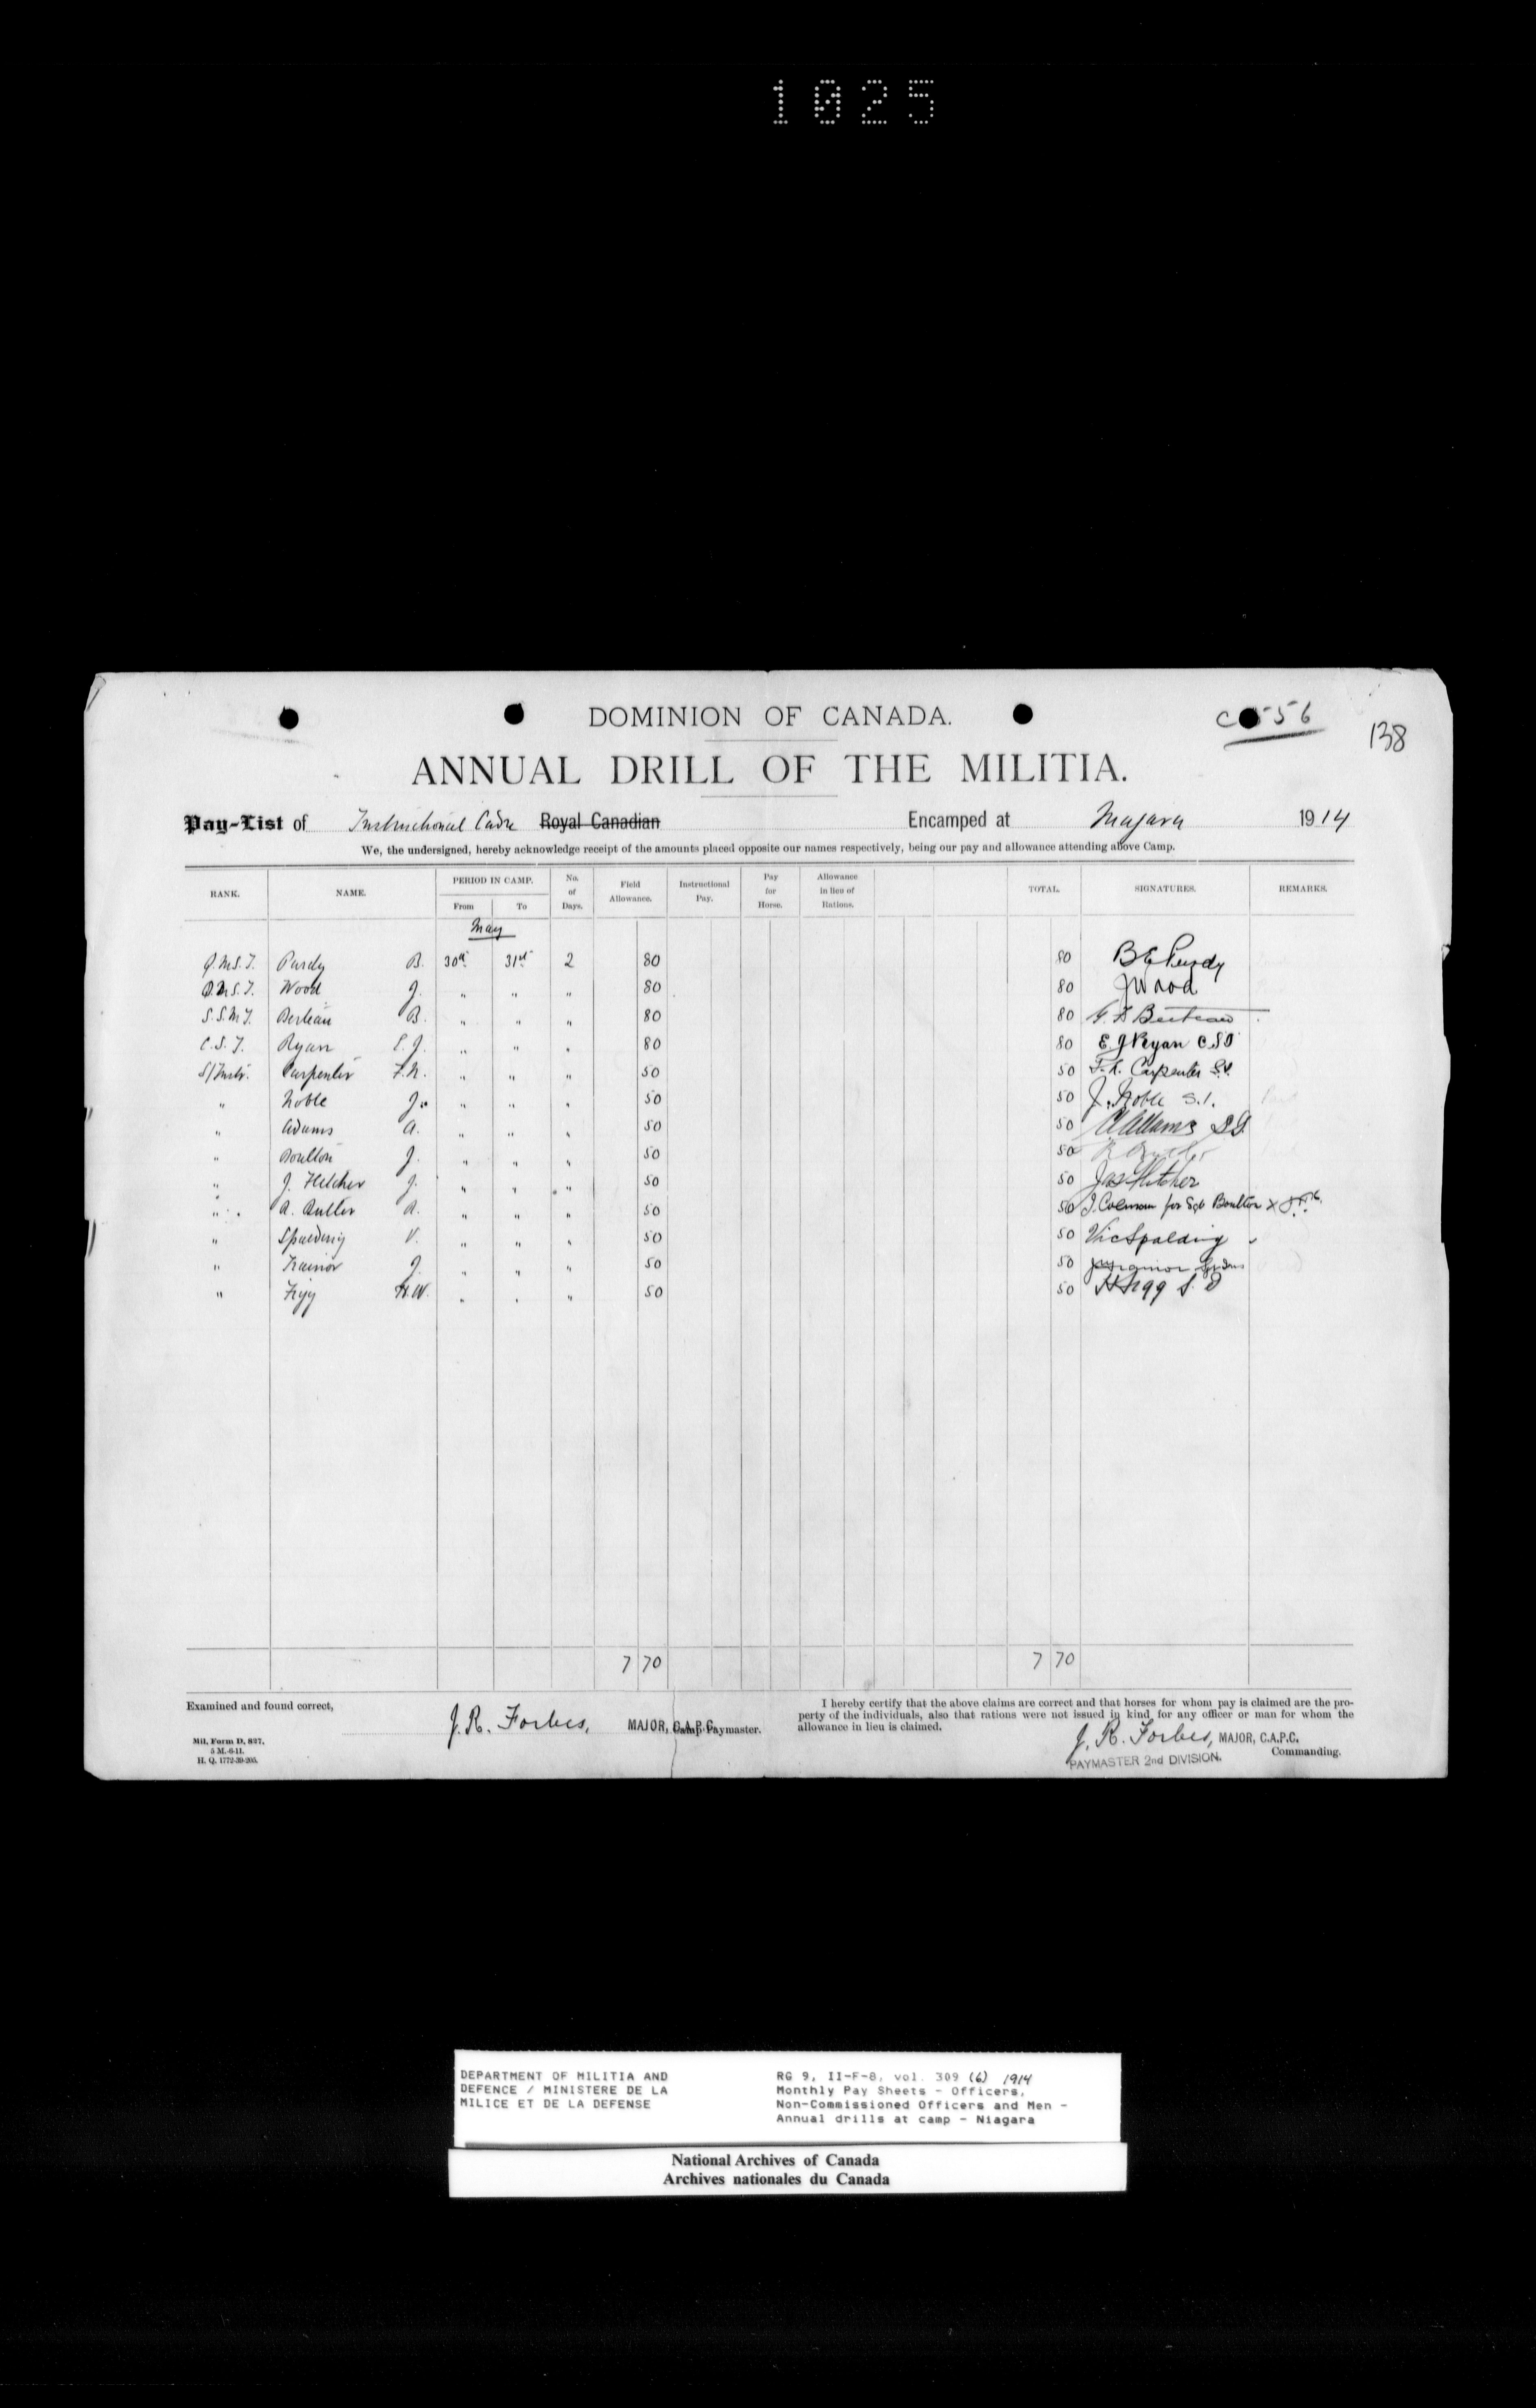 1025
DOMINION OF CANADA.
C 556
138
ANNUAL DRILL OF THE MILITIA.
Pay-List of Instructional Cadre Royal Canadian Encamped at Niagara 1914
We, the undersigned, hereby acknowledge receipt of the amounts placed opposite our names respectively, being our pay and allowance attending above Camp.
RANK. NAME. PERIOD IN CAMP. From To No. of Days. Field Allowance. Instructional Pay. Pay for Horse. Allowance in lieu of Rations. TOTAL. SIGNATURES. REMARKS.
May
Q.M.S.I. Purdy B. 30th 31st 2 80 80 B E Purdy
Q.M.S.I. Wood J. " " " 80 80 J Wood
S.S.M.I. Berteau B. " " " 80 80 Berteau
C.S.I. Ryan E.J. " " " 80 80 E J Ryan C S I
S/Instr. Carpenter F.N. " " " 50 50 Carpenter S.I.
" Noble J. " " " 50 50 J. Noble S.I.
" Adams A. " " " 50 50 A Adams
" Boulton J. " " " 50 50
" J. Fletcher J. " " " 50 50 Jas Fletcher
" A. Butler A. " " " 50 50 for Sgt Boulton X
" Spalding V. " " " 50 50 Vic Spalding
" Trainor J. " " " 50 50
" Figg H.W. " " " 50 50 Figg S. I
7 70 7 70
Examined and found correct,
J. R. Forbes, MAJOR, C.A.P.C. Camp Paymaster.
I hereby certify that the above claims are correct and that horses for whom pay is claimed are the property of the individuals, also that rations were not issued in kind for any officer or man for whom the allowance in lieu is claimed.
J. R. Forbes, MAJOR, C.A.P.C.
Commanding.
PAYMASTER 2nd DIVISION.
Mil. Form D. 837.
5 M.-6-11.
H. Q. 1772-39-205.
DEPARTMENT OF MILITIA AND
DEFENCE / MINISTERE DE LA
MILICE ET DE LA DEFENSE
RG 9, II-F-8, vol. 309 (6) 1914
Monthly Pay Sheets - Officers,
Non-Commissioned Officers and Men -
Annual drills at camp - Niagara
National Archives of Canada
Archives nationales du Canada